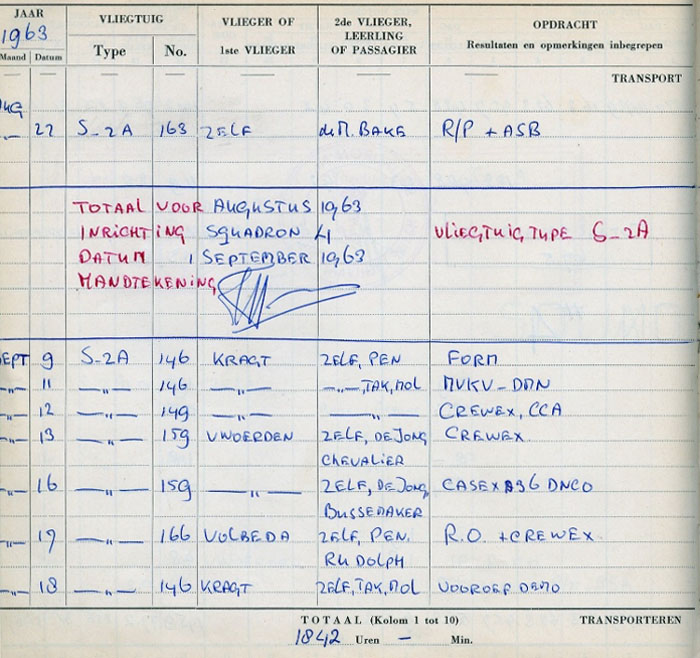 JAAR VLIEGTUIG VLIEGER OF 2de VLIEGER, OPDRACHT
1963 LEERLING
Maand Datum Type No. 1ste VLIEGER OF PASSAGIER Resultaten en opmerkingen inbegrepen
TRANSPORT
AUG
—„— 22 S-2A 163 ZELF de M. BAKE R/P + ASB
TOTAAL VOOR AUGUSTUS 1963
INRICHTING SQUADRON 4 VLIEGTUIG TYPE S-2A
DATUM 1 SEPTEMBER 1963
HANDTEKENING
SEPT 9 S-2A 146 KRAGT ZELF, PEN FORM
—„— 11 —„— 146 —„— —„—, TAK, MOL MVKV-DMN
—„— 12 —„— 149 —„— —„— CREWEX, CCA
—„— 13 —„— 159 VWOERDEN ZELF, DE JONG CREWEX
CHEVALIER
—„— 16 —„— 159 —„— ZELF, DE JONG, CASEX B36 DNCO
BUSSEMAKER
—„— 17 —„— 166 VOLBEDA ZELF, PEN, R.O. + CREWEX
RUDOLPH
—„— 18 —„— 146 KRAGT ZELF, TAK, MOL VOOROEF DEMO
TOTAAL (Kolom 1 tot 10) TRANSPORTEREN
1842 Uren — Min.